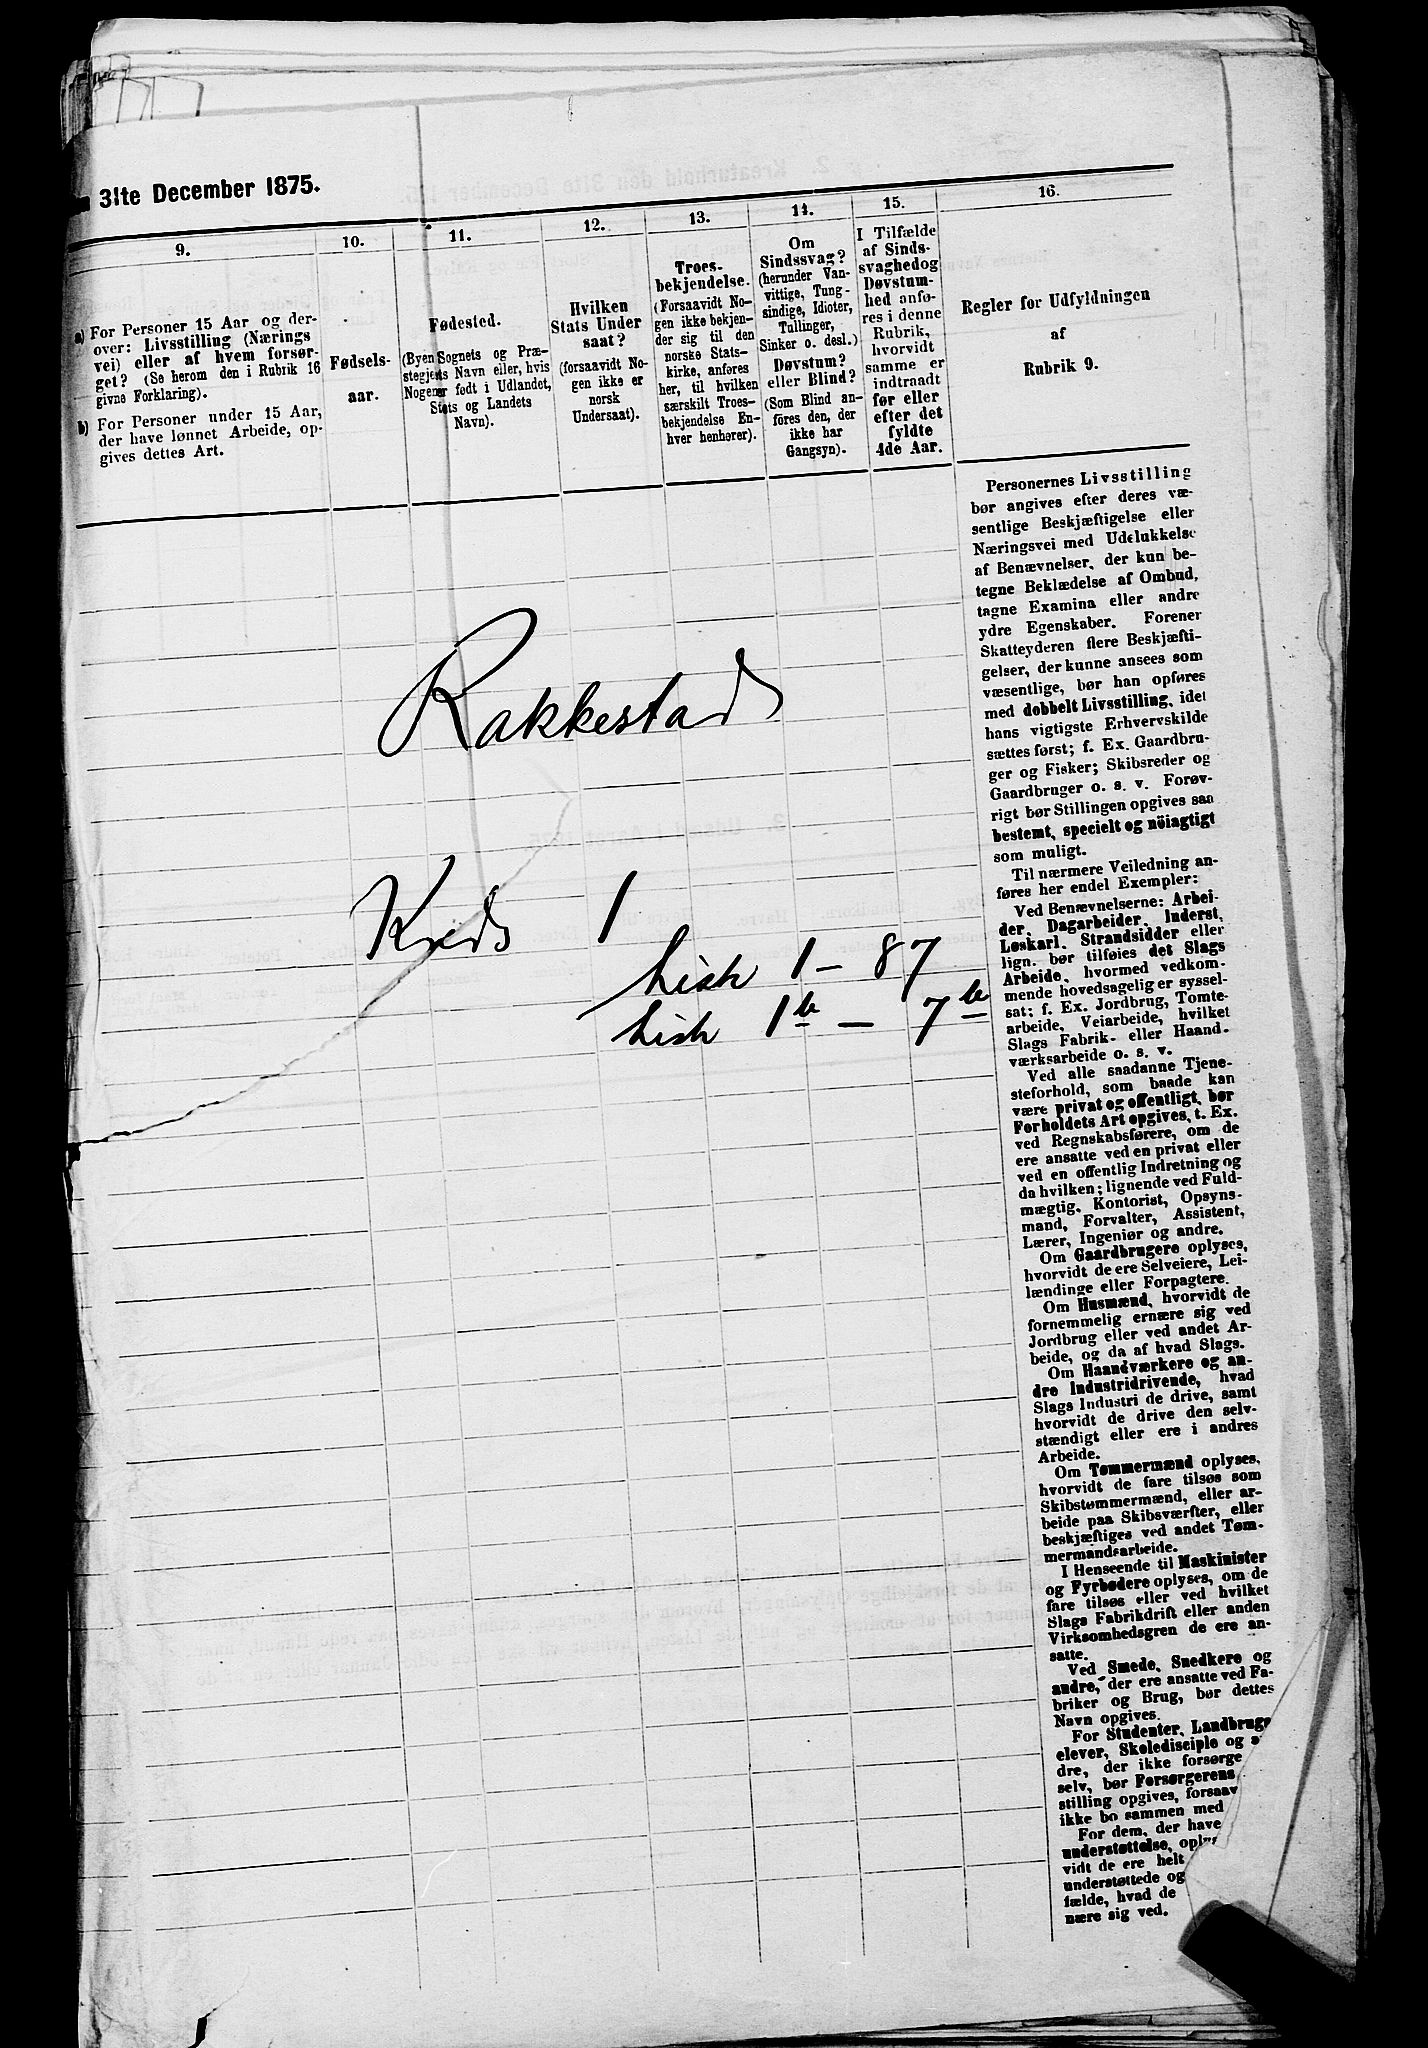 31te December 1875.
9.
a) For Personer 15 Aar og der-
over: Livsstilling (Nærings
vei) eller af hvem forsør-
get? (Se herom den i Rubrik 16
givne Forklaring).
b) For Personer under 15 Aar,
der have lønnet Arbeide, op-
gives dettes Art.
10.
Fødsels-
aar.
11.
Fødested.
(Byens, Sognets og Præ-
stegjelds Navn eller, hvis
Nogen er født i Udlandet,
Stats og Landets
Navn).
12.
Hvilken
Stats Under
saat?
(forsaavidt No-
gen ikke er
norsk
Undersaat).
13.
Troes-
bekjendelse.
(Forsaavidt No-
gen ikke bekjen-
der sig til den
norske Stats-
kirke, anføres
her, til hvilken
særskilt Troes-
bekjendelse En-
hver henhører).
14.
Om
Sindssvag?
(herunder Van-
vittige, Tung-
sindige, Idioter,
Tullinger,
Sinker o. desl.)
Døvstum?
eller Blind?
(Som Blind an-
føres den, der
ikke har
Gangsyn).
15.
I Tilfælde
af Sinds-
svaghed og
Døvstum-
hed anfø-
res i denne
Rubrik,
hvorvidt
samme er
indtraadt
før eller
efter det
fyldte
4de Aar.
16.
Regler for Udfyldningen
af
Rubrik 9.
Personernes Livsstilling
bør angives efter deres væ-
sentlige Beskjæftigelse eller
Næringsvei med Udelukkelse
af Benævnelser, der kun be-
tegne Beklædelse af Ombud,
tagne Examina eller andre
ydre Egenskaber. Forener
Skatteyderen flere Beskjæfti-
gelser, der kunne ansees som
væsentlige, bør han opføres
med dobbelt Livsstilling, idet
hans vigtigste Erhvervskilde
sættes først; f. Ex. Gaardbru-
ger og Fisker; Skibsreder og
Gaardbruger o. s. v. Forøv-
rigt bør Stillingen opgives saa
bestemt, specielt og nöiagtigt
som muligt.
Til nærmere Veiledning an-
føres her endel Exempler:
Ved Benævnelserne: Arbei-
der, Dagarbeider, Inderst,
Løskarl, Strandsidder eller
lign. bør tilføies det Slags
Arbeide, hvormed vedkom-
mende hovedsagelig er syssel-
sat; f. Ex. Jordbrug, Tomte-
arbeide, Veiarbeide, hvilket
Slags Fabrik- eller Haand-
værksarbeide o. s. v.
Ved alle saadanne Tjene-
steforhold, som baade kan
være privat og offentligt, bør
Forholdets Art opgives, t. Ex.
ved Regnskabsførere, om de
ere ansatte ved en privat eller
ved en offentlig Indretning og
da hvilken; lignende ved Fuld-
mægtig, Kontorist, Opsyns-
mand, Forvalter, Assistent,
Lærer, Ingeniør og andre.
Om Gaardbrugere oplyses,
hvorvidt de ere Selveiere, Lei-
lændinge eller Forpagtere.
Om Husmænd, hvorvidt de
fornemmelig ernære sig ved
Jordbrug eller ved andet Ar-
beide, og da af hvad Slags.
Om Haandværkere og an-
dre Industridrivende, hvad
Slags Industri de drive, samt
hvorvidt de drive den selv-
stændigt eller ere i andres
Arbeide.
Om Tømmermænd oplyses,
hvorvidt de fare tilsøs som
Skibstømmermænd, eller ar-
beide paa Skibsværfter, eller
beskjæftiges ved andet Tøm-
mermandsarbeide.
I Henseende til Maskinister
og Fyrbødere oplyses, om de
fare tilsøs eller ved hvilket
Slags Fabrikdrift eller anden
Virksomhedsgren de ere an-
satte.
Ved Smede, Snedkere og
andre, der ere ansatte ved Fa-
briker og Brug, bør dettes
Navn opgives.
For Studenter, Landbrugs
elever, Skoledisciple og a
dre, der ikke forsørge
selv, bør Forsørgerens
stilling opgives, forsaav
ikke bo sammen med
For dem, der have
understøttelse, oplys
vidt de ere helt
understøttede og
fælde, hvad de
nære sig ved.
Rakkestad
Kreds 1
Liste 1 - 87
Liste 1b - 7b